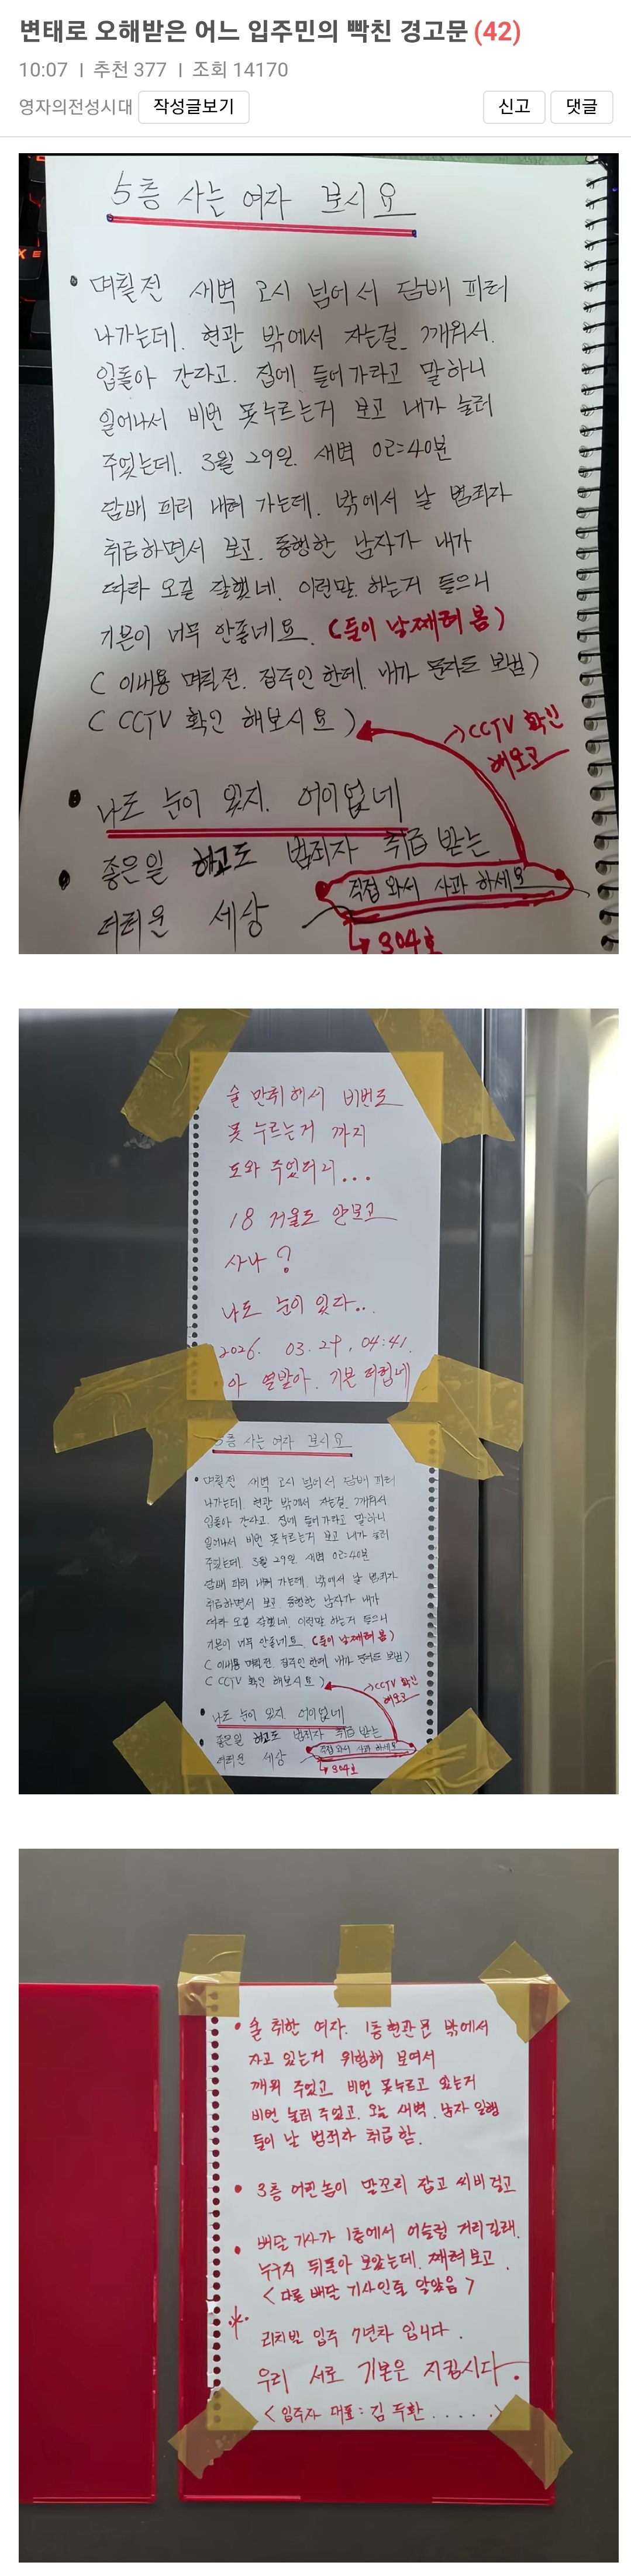 변태로 오해받은 어느 입주민의 빡친 경고문 (42)
10:07 I 추천 377 I 조회 14170
영자의전성시대 작성글보기 신고 댓글
5층 사는 여자 보시요
• 며칠전 새벽 2시 넘어서 담배 피러
나가는데. 현관 밖에서 자는걸 깨워서.
입돌아 간다고. 집에 들어가라고 말하니
일어나서 비번 못누르는거 보고 내가 눌러
주었는데. 3월 29일. 새벽 02:40분
담배 피러 내려 가는데. 밖에서 날 범죄자
취급하면서 보고. 동행한 남자가 내가
따라 오길 잘했네. 이런말. 하는거 들으니
기분이 너무 안좋네요. (둘이 날째려 봄)
( 이내용 며칠전. 집주인 한테. 내가 문자도 보냄)
( CCTV 확인 해보시요 )
→ CCTV 확인
해보고
• 나도 눈이 있지. 어이없네
• 좋은일 하고도 범죄자 취급 받는
더러운 세상
직접 와서 사과 하세요
↳ 304호
술 만취해서 비번도
못 누르는거 까지
도와 주었더니...
18 거울도 안보고
사나?
나도 눈이 있다..
2026. 03. 29, 04:41.
아 열받아. 기분 더럽네
5층 사는 여자 보시요
• 며칠전 새벽 2시 넘어서 담배 피러
나가는데. 현관 밖에서 자는걸 깨워서
입돌아 간다고. 집에 들어가라고 말하니
일어나서 비번 못누르는거 보고 내가 눌러
주었는데. 3월 29일. 새벽 02:40분
담배 피러 내려 가는데. 밖에서 날 범죄자
취급하면서 보고. 동행한 남자가 내가
따라 오길 잘했네. 이런말 하는거 들으니
기분이 너무 안좋네요. (둘이 날째려 봄)
( 이내용 며칠전. 집주인 한테. 내가 문자도 보냄)
( CCTV 확인 해보시요 )
→ CCTV 확인
해보고
• 나도 눈이 있지. 어이없네
• 좋은일 하고도 범죄자 취급 받는
더러운 세상
직접 와서 사과 하세요
↳ 304호
• 술 취한 여자. 1층현관문 밖에서
자고 있는거 위험해 보여서
깨워 주었고 비번 못누르고 있는거
비번 눌러 주었고. 오늘 새벽. 남자 일행
들이 날 범죄자 취급함.
• 3층 어린놈이 말꼬리 잡고 씨비 걸고
• 배달 기사가 1층에서 어슬렁 거리길래.
누구지 뒤돌아 보았는데. 째려보고.
< 다른 배달 기사인줄 알았음 >
* 리치빌 입주 7년차 입니다.
우리 서로 기본은 지킵시다.
< 입주자 대표 : 김 두환 ..... >